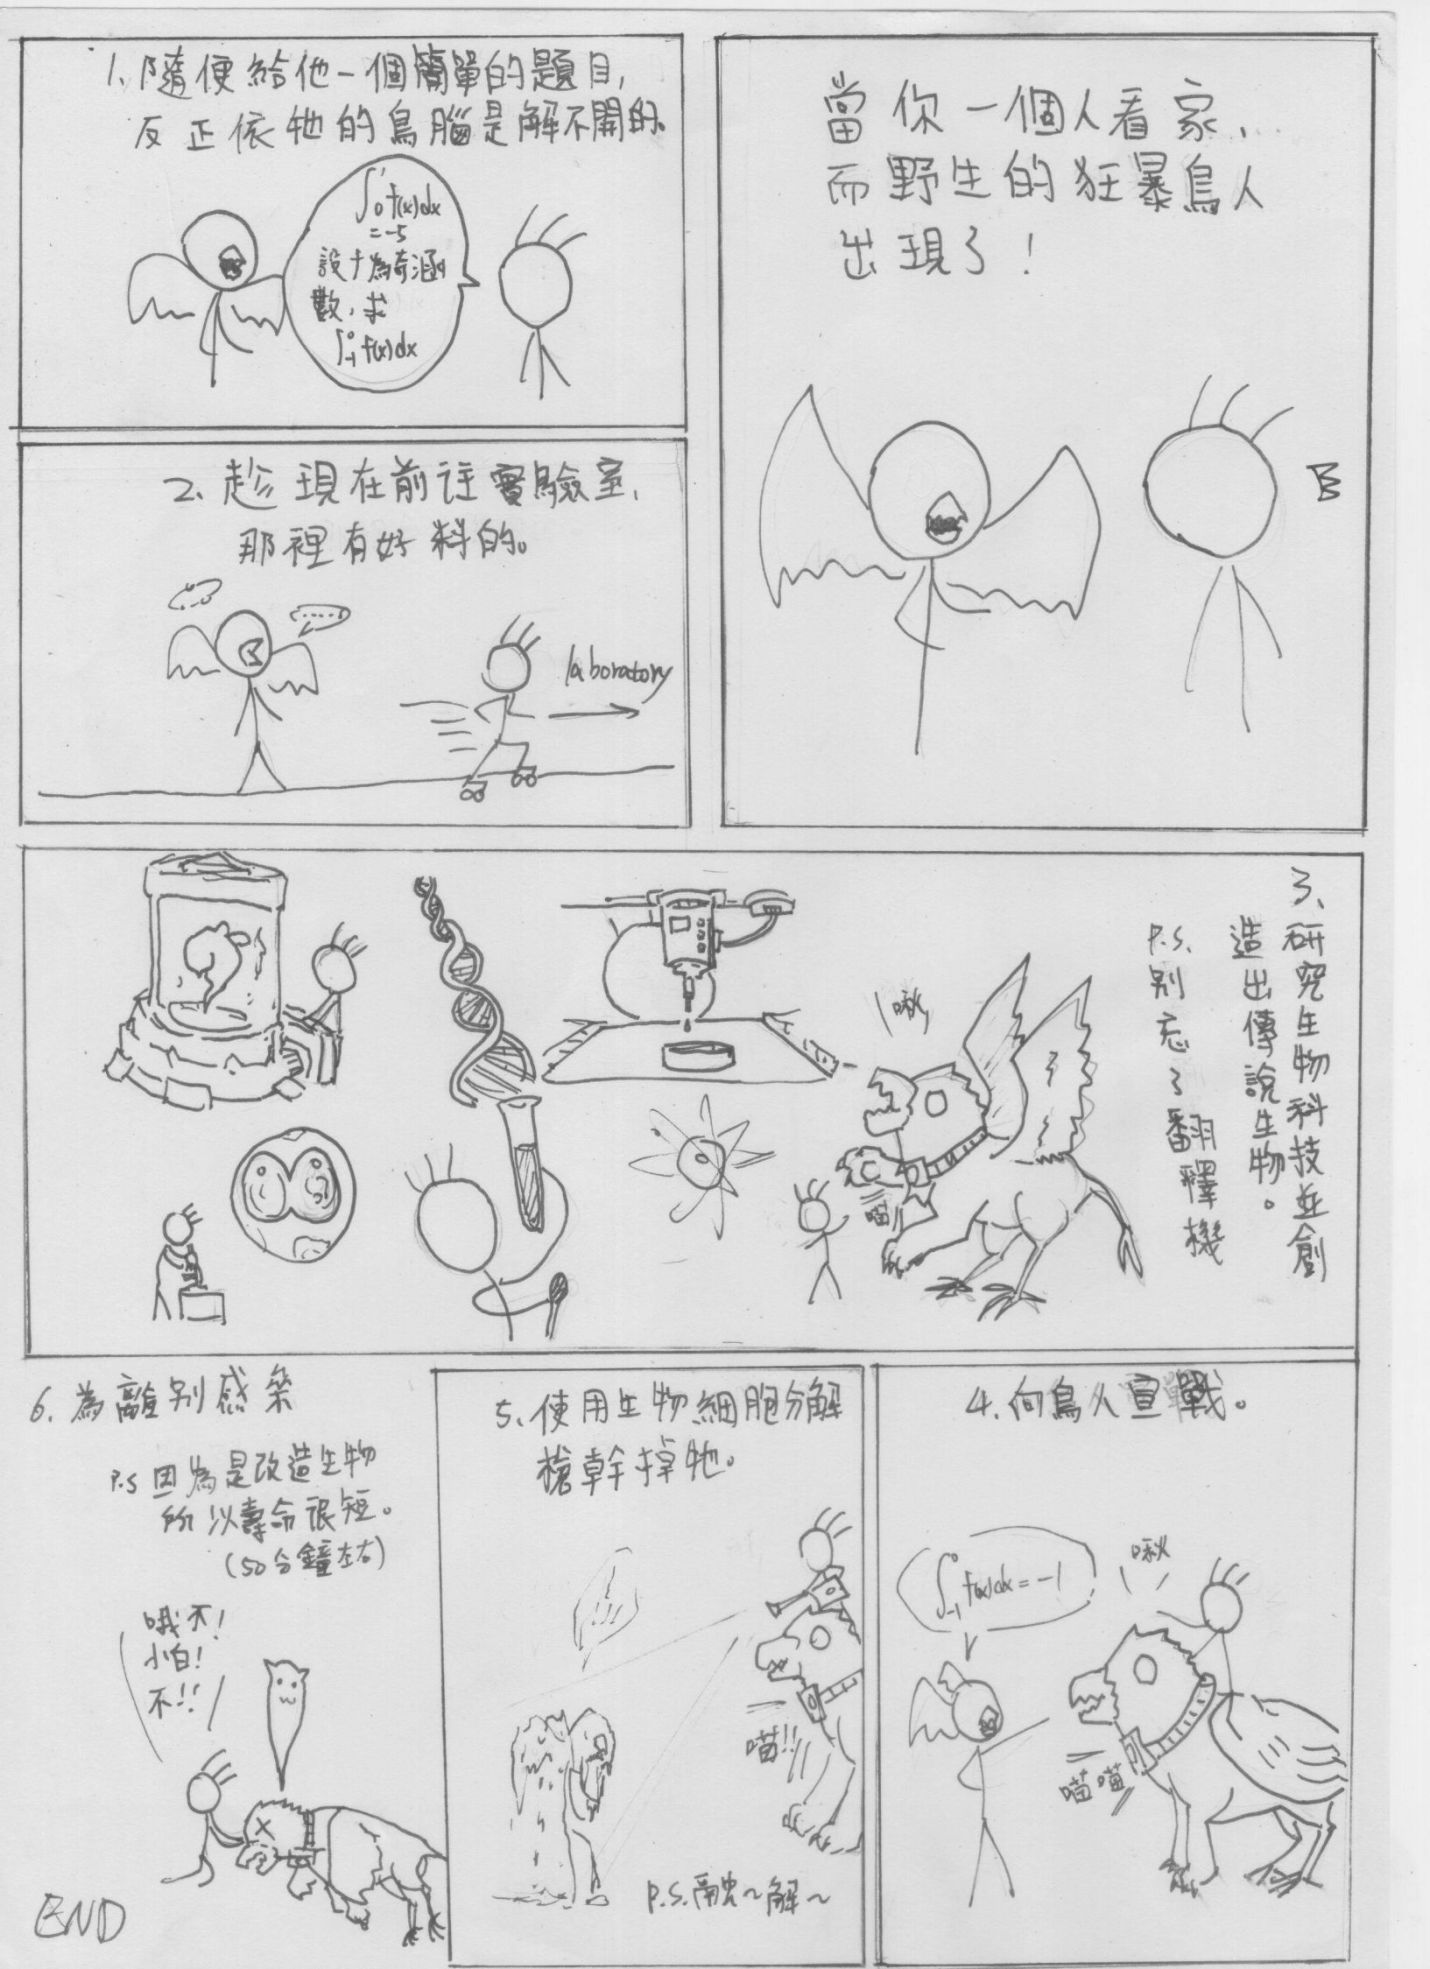 當你一個人看家，
而野生的狂暴鳥人
出現了！
1、隨便給他一個簡單的題目，
反正依牠的鳥腦是解不開的。
∫₀¹f(x)dx
=-5
設f為奇函
數，求
∫₋₁⁰f(x)dx
2、趁現在前往實驗室，
那裡有好料的。
......
laboratory
3、研究生物科技並創
造出傳說生物。
P.S.別忘了翻譯機
啾
喵
4、向鳥人宣戰。
∫₋₁⁰f(x)dx=-1
啾
喵喵
5、使用生物細胞分解
槍幹掉牠。
喵!!
P.S.融~解~
6、為離別感染
P.S因為是改造生物
所以壽命很短。
(50分鐘左右)
哦不!
小白!
不!!
END